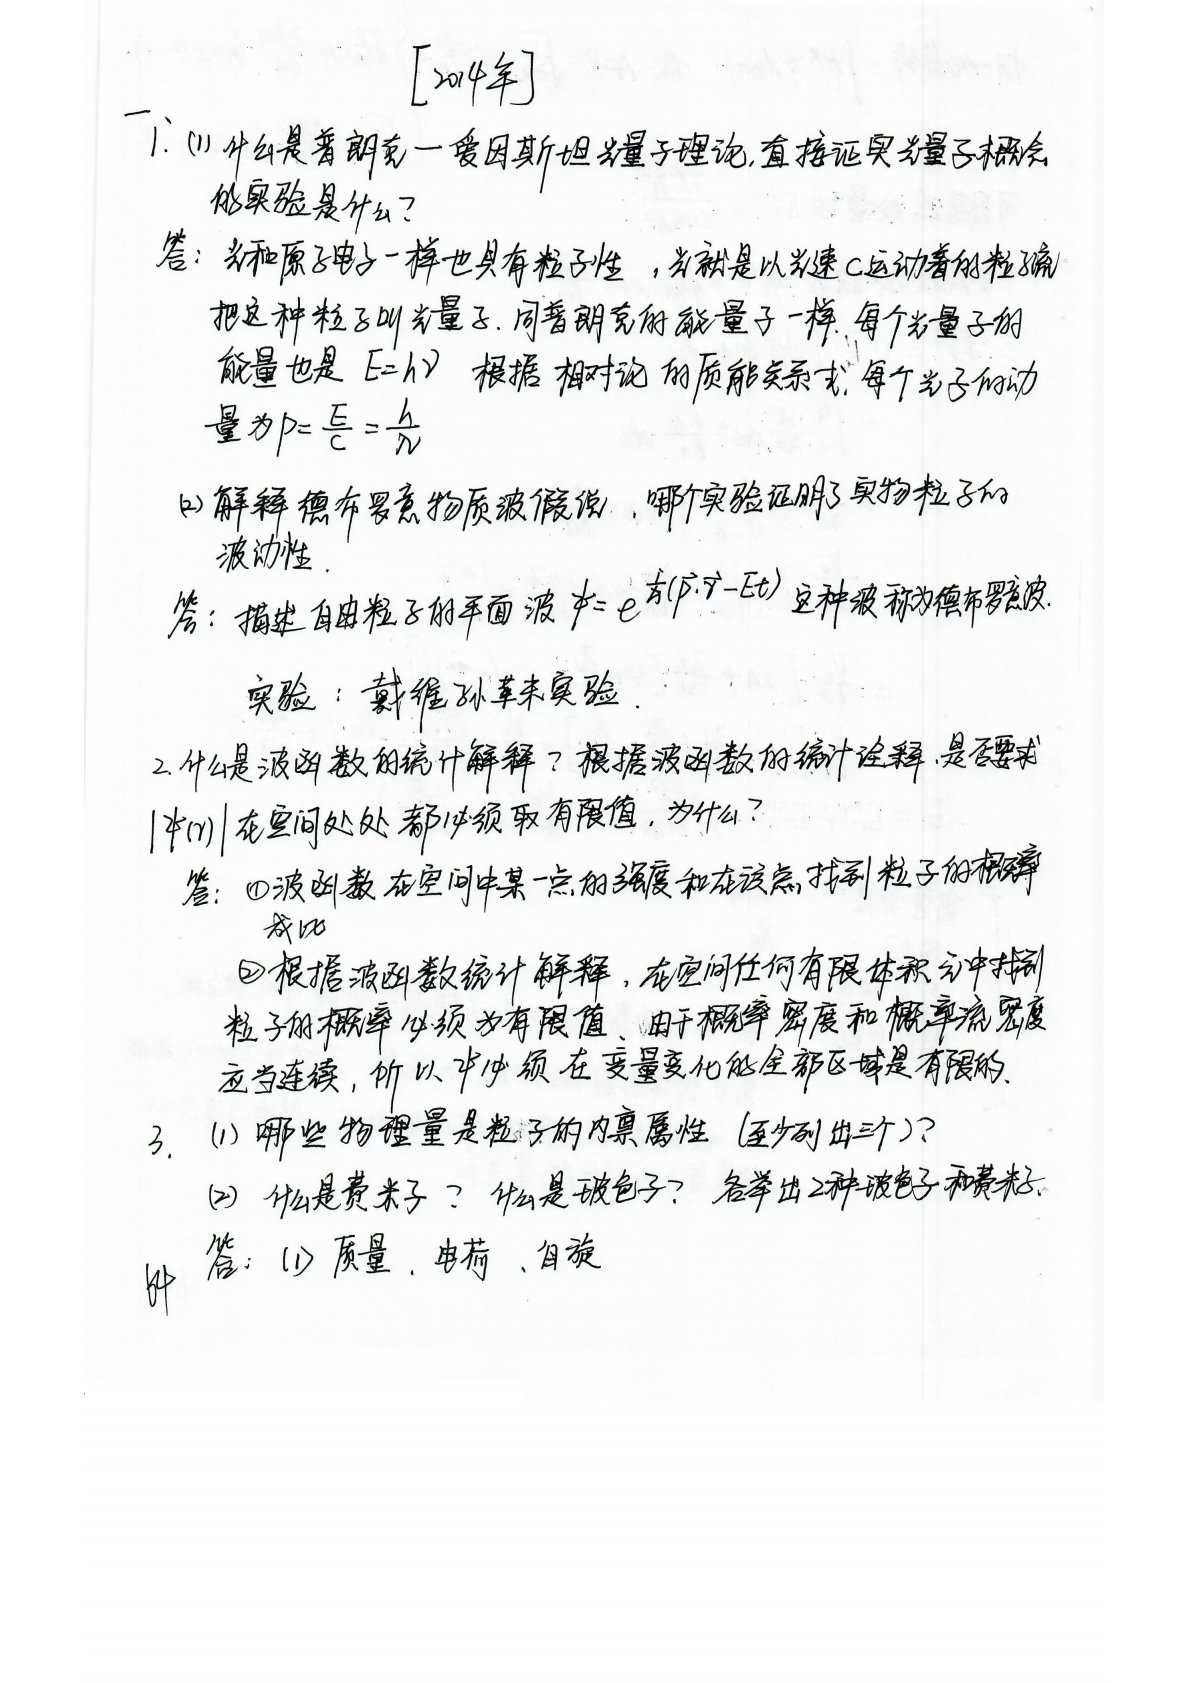 [2014年]
一
1. (1) 什么是普朗克一爱因斯坦光量子理论,直接证实光量子概念
的实验是什么?
答: 光和原子电子一样也具有粒子性,光就是以光速C运动着的粒子流
把这种粒子叫光量子.同普朗克的能量子一样.每个光量子的
能量也是 E=hν 根据相对论的质能关系式.每个光子的动
量为 P=E/C=h/λ
(2) 解释德布罗意物质波假说、哪个实验证明了实物粒子的
波动性.
答: 描述自由粒子的平面波 ψ=e^{i/ħ(p⃗·r⃗-Et)} 这种波称为德布罗意波.
实验: 戴维孙革末实验.
2. 什么是波函数的统计解释?根据波函数的统计诠释.是否要求
|ψ(r)|在空间处处都必须取有限值.为什么?
答: ①波函数在空间中某一点的强度和在该点找到粒子的概率
成比
②根据波函数统计解释,在空间任何有限体积元中找到
粒子的概率必须为有限值、由于概率密度和概率流密度
应当连续,所以ψ必须在变量变化的全部区域是有限的.
3. (1) 哪些物理量是粒子的内禀属性 (至少列出三个)?
(2) 什么是费米子? 什么是玻色子? 各举出2种玻色子和费米子.
答: (1) 质量、电荷、自旋
64